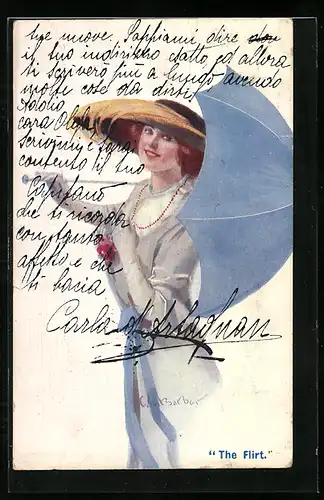 tue nuove. Sappiami dire
il tuo indirizzo datto, ed allora
ti scriverò più a lungo avendo
molte cose da dirti
Addio
cara
scrivimi e farai
contento il tuo
Capitano
che ti ricorda
con tanto
affetto e che
ti bacia
Carlo d'Artagnan
C. W. Barber
"The Flirt."